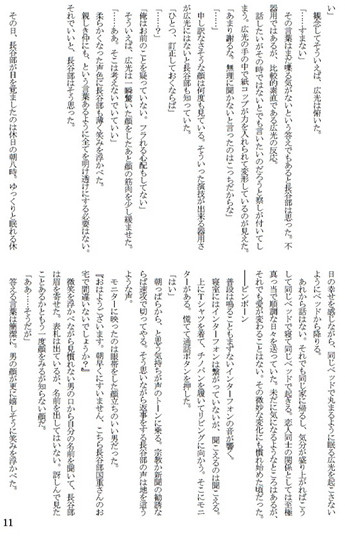 い」
観念してそういえば、広光は俯いた。
「……すまない」
その言葉はまだ喋る気がないという答えでもあると長谷部は思った。不
器用ではあるが、比較的素直である広光の反応。
話したいがその時ではないとでも言いたいのだろうと察しが付いてし
まう。広光の手の中で紙コップが力を入れられて変形しているのが見えた。
「あまり謝るな。無理に聞かないと言ったのはこっちだからな」
「……」
申し訳なさそうな顔は何度も見ている。そういった演技が出来る器用さ
が広光にはないと長谷部も知っていた。
「ひとつ、訂正しておくならば」
「……?」
「俺はお前のことを疑っていない、フラれる心配もしてない」
そういえば、広光は一瞬驚いた顔をしたあと顔の筋肉を少し緩ませた。
「……ああ、そこは考えないでいていい」
柔らかくなった声色に長谷部も薄く笑みを浮かべた。
親しき仲にも、という言葉あるように全てを明け透けにする必要はない。
それでいいと、長谷部はそう思った。
その日、長谷部が目を覚ましたのは休日の朝八時。ゆっくりと眠れる休
日の幸せを感じながら、同じベッドで丸まるように眠る広光を起こさない
ようにベッドから降りる。
あれから話はない。それでも同じ家に帰るし、気分が盛り上がればこう
して同じベッドで寝て同じベッドで起きる。恋人同士の関係としては至極
真っ当で順調な日々を送っていた。未だに気になるようなところはあるが、
それでも愛が変わることはない。その微妙な変化にも慣れ始めた頃だった。
――ピンポーン
普段は鳴ることもまずないインターフォンの音が響く。
寝室にはインターフォンは繋がっていないが、聞こえるのは聞こえる。
上にTシャツを着て、チノパンを履いてリビングに向かう。そこにモニ
ターがある。慌てて通話ボタンを押した。
「はい」
朝っぱらから、と思う気持ちが声のトーンに乗る。宗教か新聞の勧誘な
らば速攻で切ってやる。そう思いながら返事をする長谷部の声は地を這う
ような声。
モニターに映ったのは眼帯をした顔立ちのいい男だった。
『おはようございます。朝早くにすいません。こちら長谷部国重さんのお
宅で間違いないでしょうか?』
微笑を浮かべながら見慣れない男の口から自分の名前を聞いて、長谷部
は眉を寄せた。表札は出ているが、名前を出してはいない。訝しんで見た
ことあるかともう一度顔をみるが知らない顔だ。
「ああ……そうだが」
答える言葉は簡潔に。男の顔が更に嬉しそうに笑みを浮かべた。
11